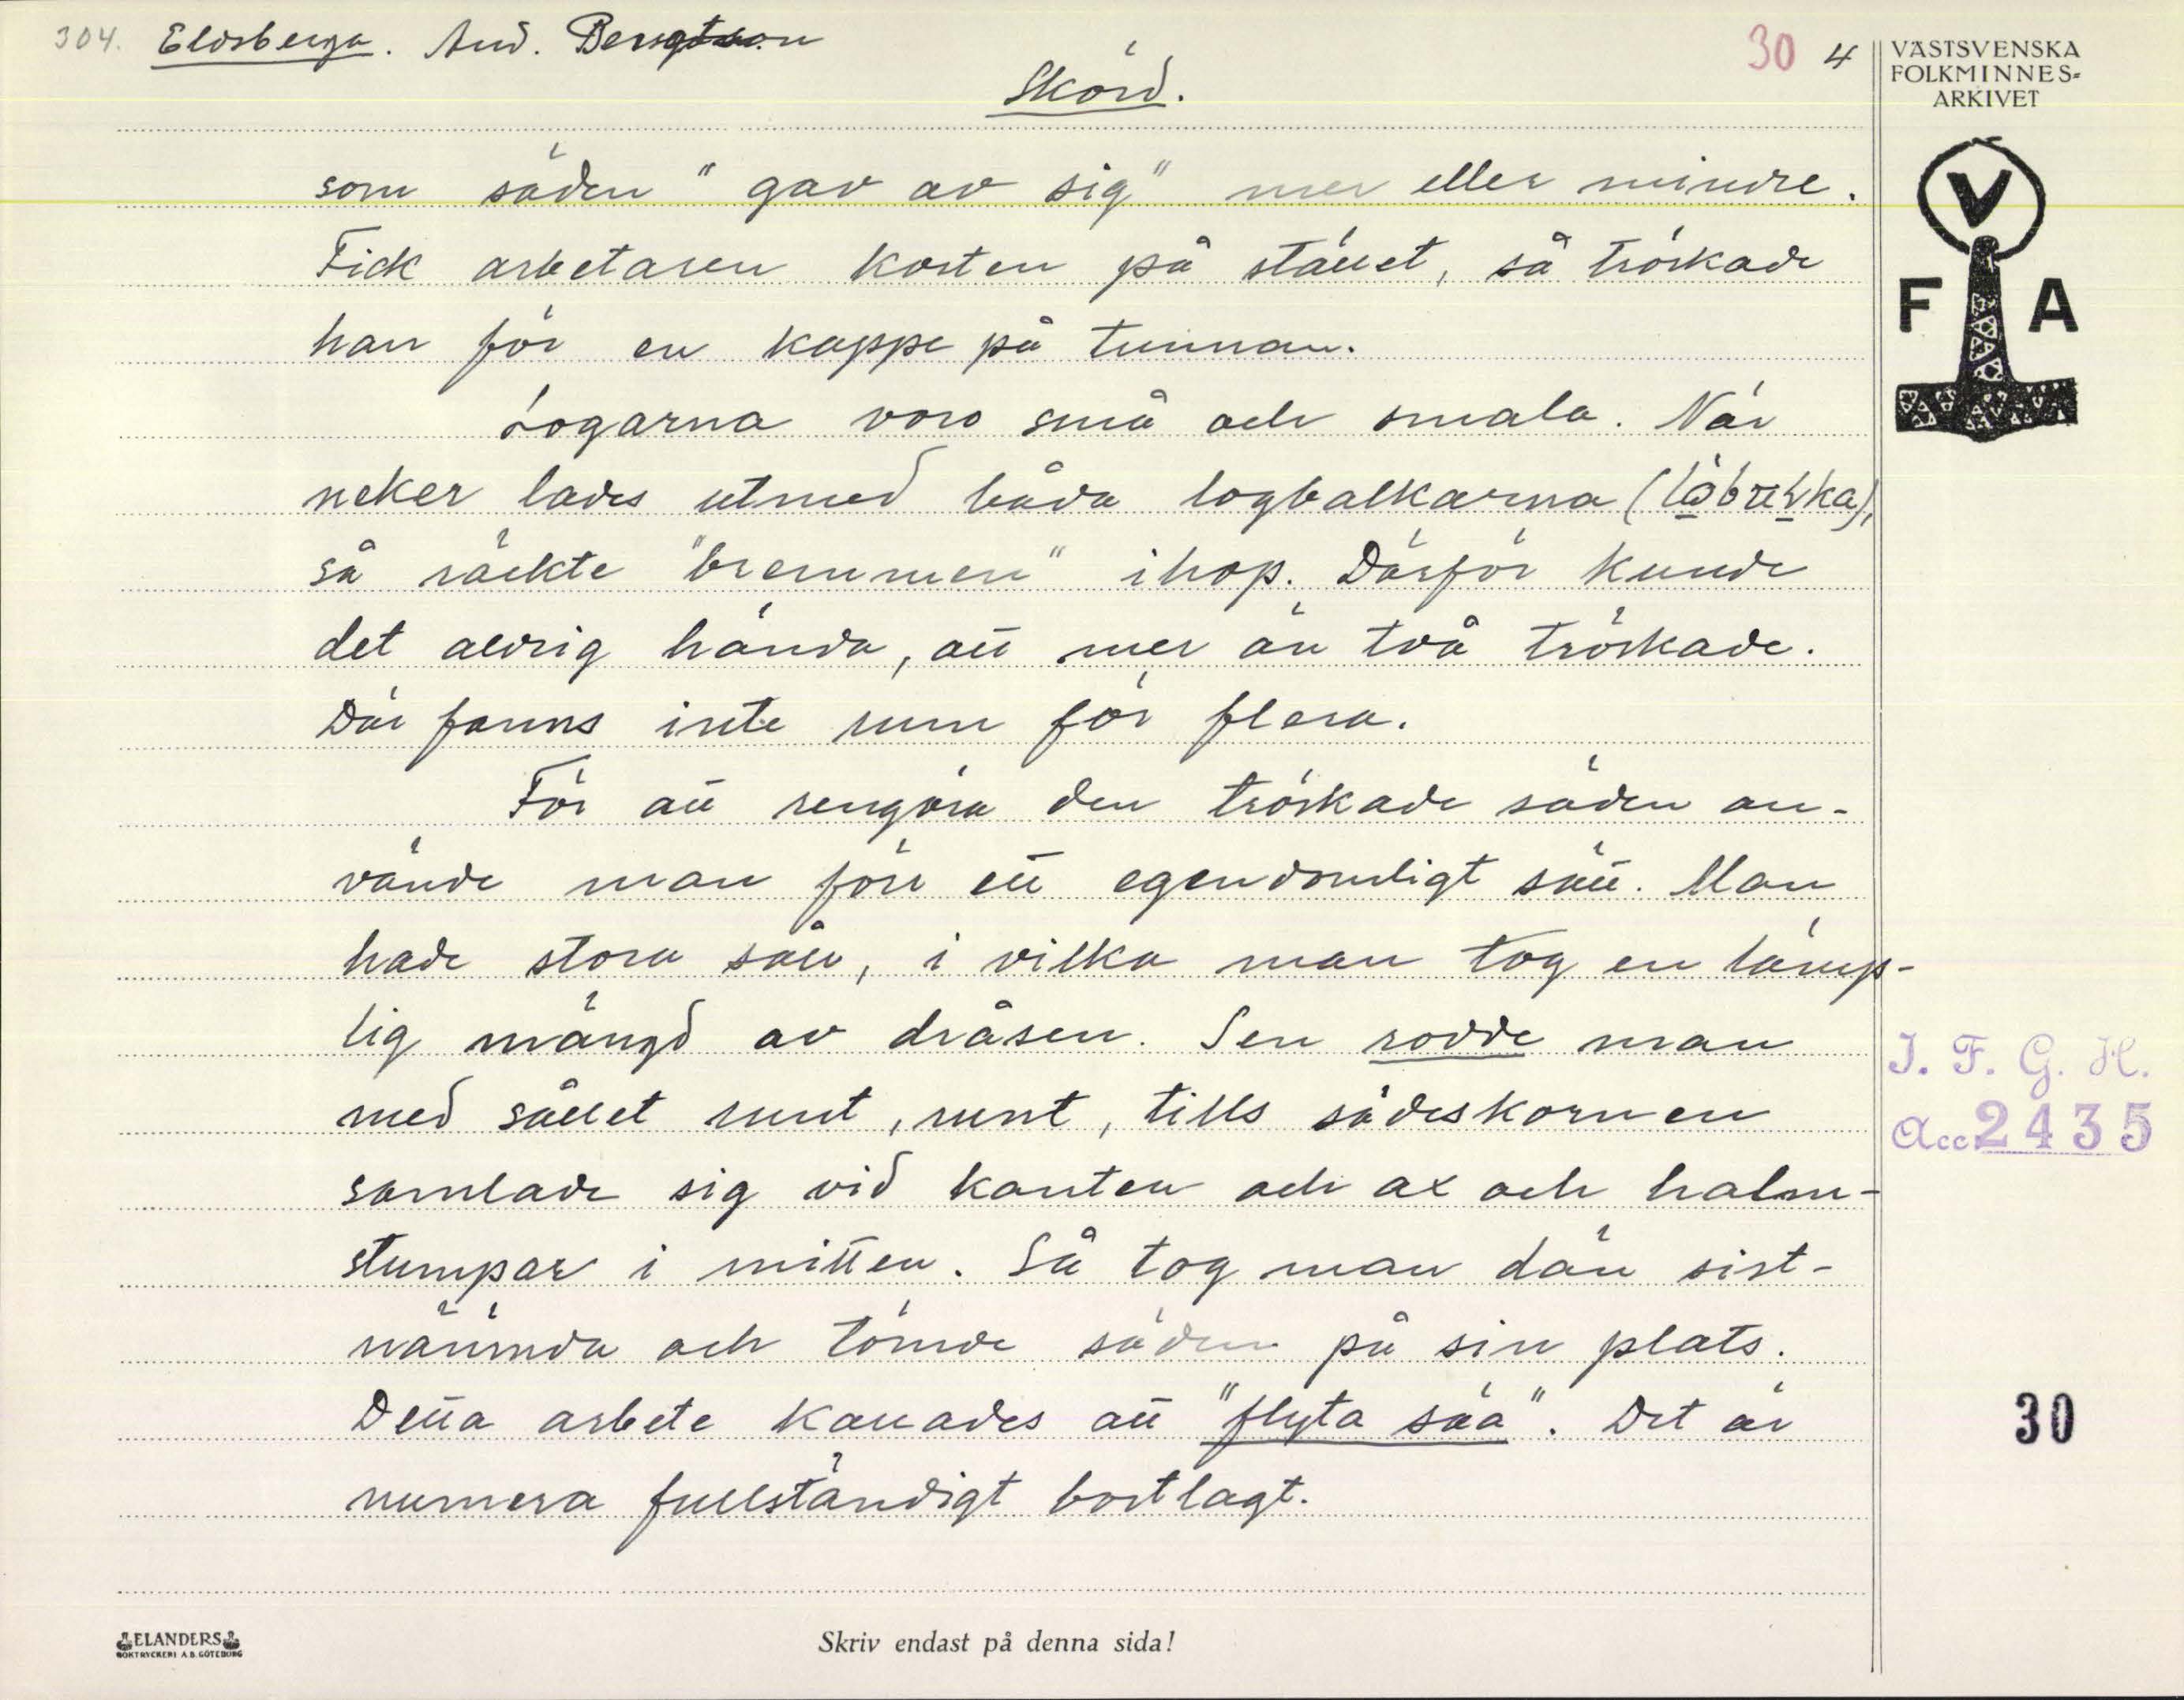 304. Eldsberga. And. Bengtson
30 4
VÄSTSVENSKA
FOLKMINNES-
ARKIVET
Skörd.
V
F A
som säden "gav av sig" mer eller mindre.
Fick arbetaren kosten på stället, så tröskade
han för en kappe på tunnan.
Logarna voro små och smala. När
neker lades utmed båda logbalkarna
så räckte "bremmen" ihop. Därför kunde
det aldrig hända, att mer än två tröskade.
Där fanns inte rum för flera.
För att rengöra den tröskade säden an-
vände man förr ett egendomligt sätt. Man
hade stora såll, i vilka man tog en lämp-
lig mängd av dråsen. Sen rodde man
med sållet runt, runt, tills sädeskornen
samlade sig vid kanten och ax och halm-
stumpar i mitten. Så tog man dän sist-
nämnda och tömde säden på sin plats.
Detta arbete kallades att "flyta säa". Det är
numera fullständigt bortlagt.
I. F. G. H.
Acc 2435
30
ELANDERS
BOKTRYCKERI A.B. GÖTEBORG
Skriv endast på denna sida!